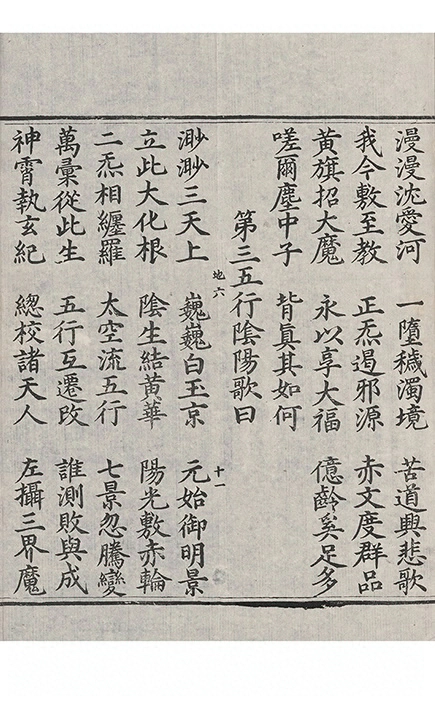 漫漫沈愛河 一墮穢濁境 苦道興悲歌
我今敷至教 正炁遏邪源 赤文度群品
黃旗招大魔 永以享大福 億齡奚足多
嗟爾塵中子 皆真其如何
第三五行陰陽歌曰
地六 十一
渺渺三天上 巍巍白玉京 元始御明景
立此大化根 陰生結黃華 陽光敷赤輪
二炁相纏羅 太空流五行 七景忽騰變
萬彙從此生 五行互遷改 誰測敗與成
神霄執玄紀 總校諸天人 左攝三界魔